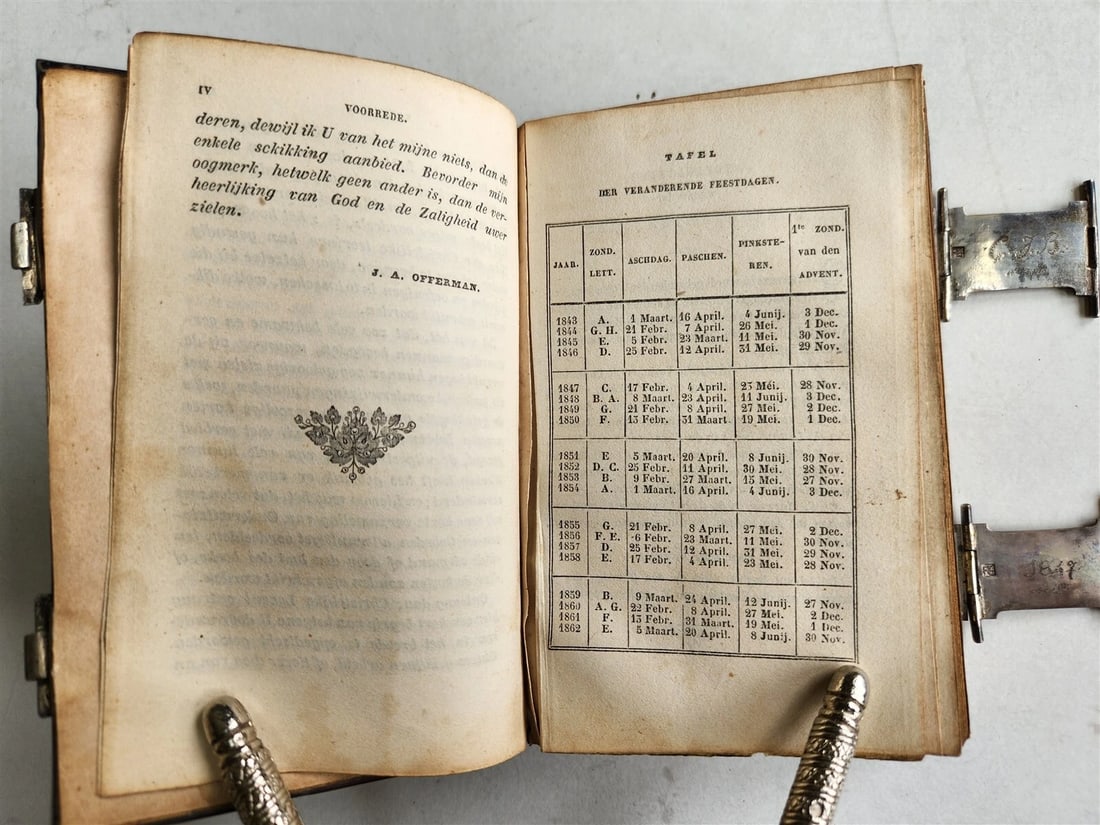 IV
VOORREDE.
deren, dewijl ik U van het mijne niets, dan de
enkele schikking aanbied. Bevorder mijn
oogmerk, hetwelk geen ander is, dan de ver-
heerlijking van God en de Zaligheid uwer
zielen.
J. A. OFFERMAN.
TAFEL
DER VERANDERENDE FEESTDAGEN.
JAAR. ZOND. LETT. ASCHDAG. PASCHEN. PINKSTE-REN. 1te ZOND. van den ADVENT.
1843 A. 1 Maart. 16 April. 4 Junij. 3 Dec.
1844 G. H. 21 Febr. 7 April. 26 Mei. 1 Dec.
1845 E. 5 Febr. 23 Maart. 11 Mei. 30 Nov.
1846 D. 25 Febr. 12 April. 31 Mei. 29 Nov.
1847 C. 17 Febr. 4 April. 23 Méi. 28 Nov.
1848 B. A. 8 Maart. 23 April. 11 Junij. 3 Dec.
1849 G. 21 Febr. 8 April. 27 Mei. 2 Dec.
1850 F. 13 Febr. 31 Maart. 19 Mei. 1 Dec.
1851 E 5 Maart. 20 April. 8 Junij. 30 Nov.
1852 D. C. 25 Febr. 11 April. 30 Mei. 28 Nov.
1853 B. 9 Febr. 27 Maart. 15 Mei. 27 Nov.
1854 A. 1 Maart. 16 April. 4 Junij. 3 Dec.
1855 G. 21 Febr. 8 April. 27 Mei. 2 Dec.
1856 F. E. 6 Febr. 23 Maart. 11 Mei. 30 Nov.
1857 D. 25 Febr. 12 April. 31 Mei. 29 Nov.
1858 E. 17 Febr. 4 April. 23 Mei. 28 Nov.
1859 B. 9 Maart. 24 April. 12 Junij. 27 Nov.
1860 A. G. 22 Febr. 8 April. 27 Mei. 2 Dec.
1861 F. 13 Febr. 31 Maart. 19 Mei. 1 Dec.
1862 E. 5 Maart. 20 April. 8 Junij. 30 Nov.
1847